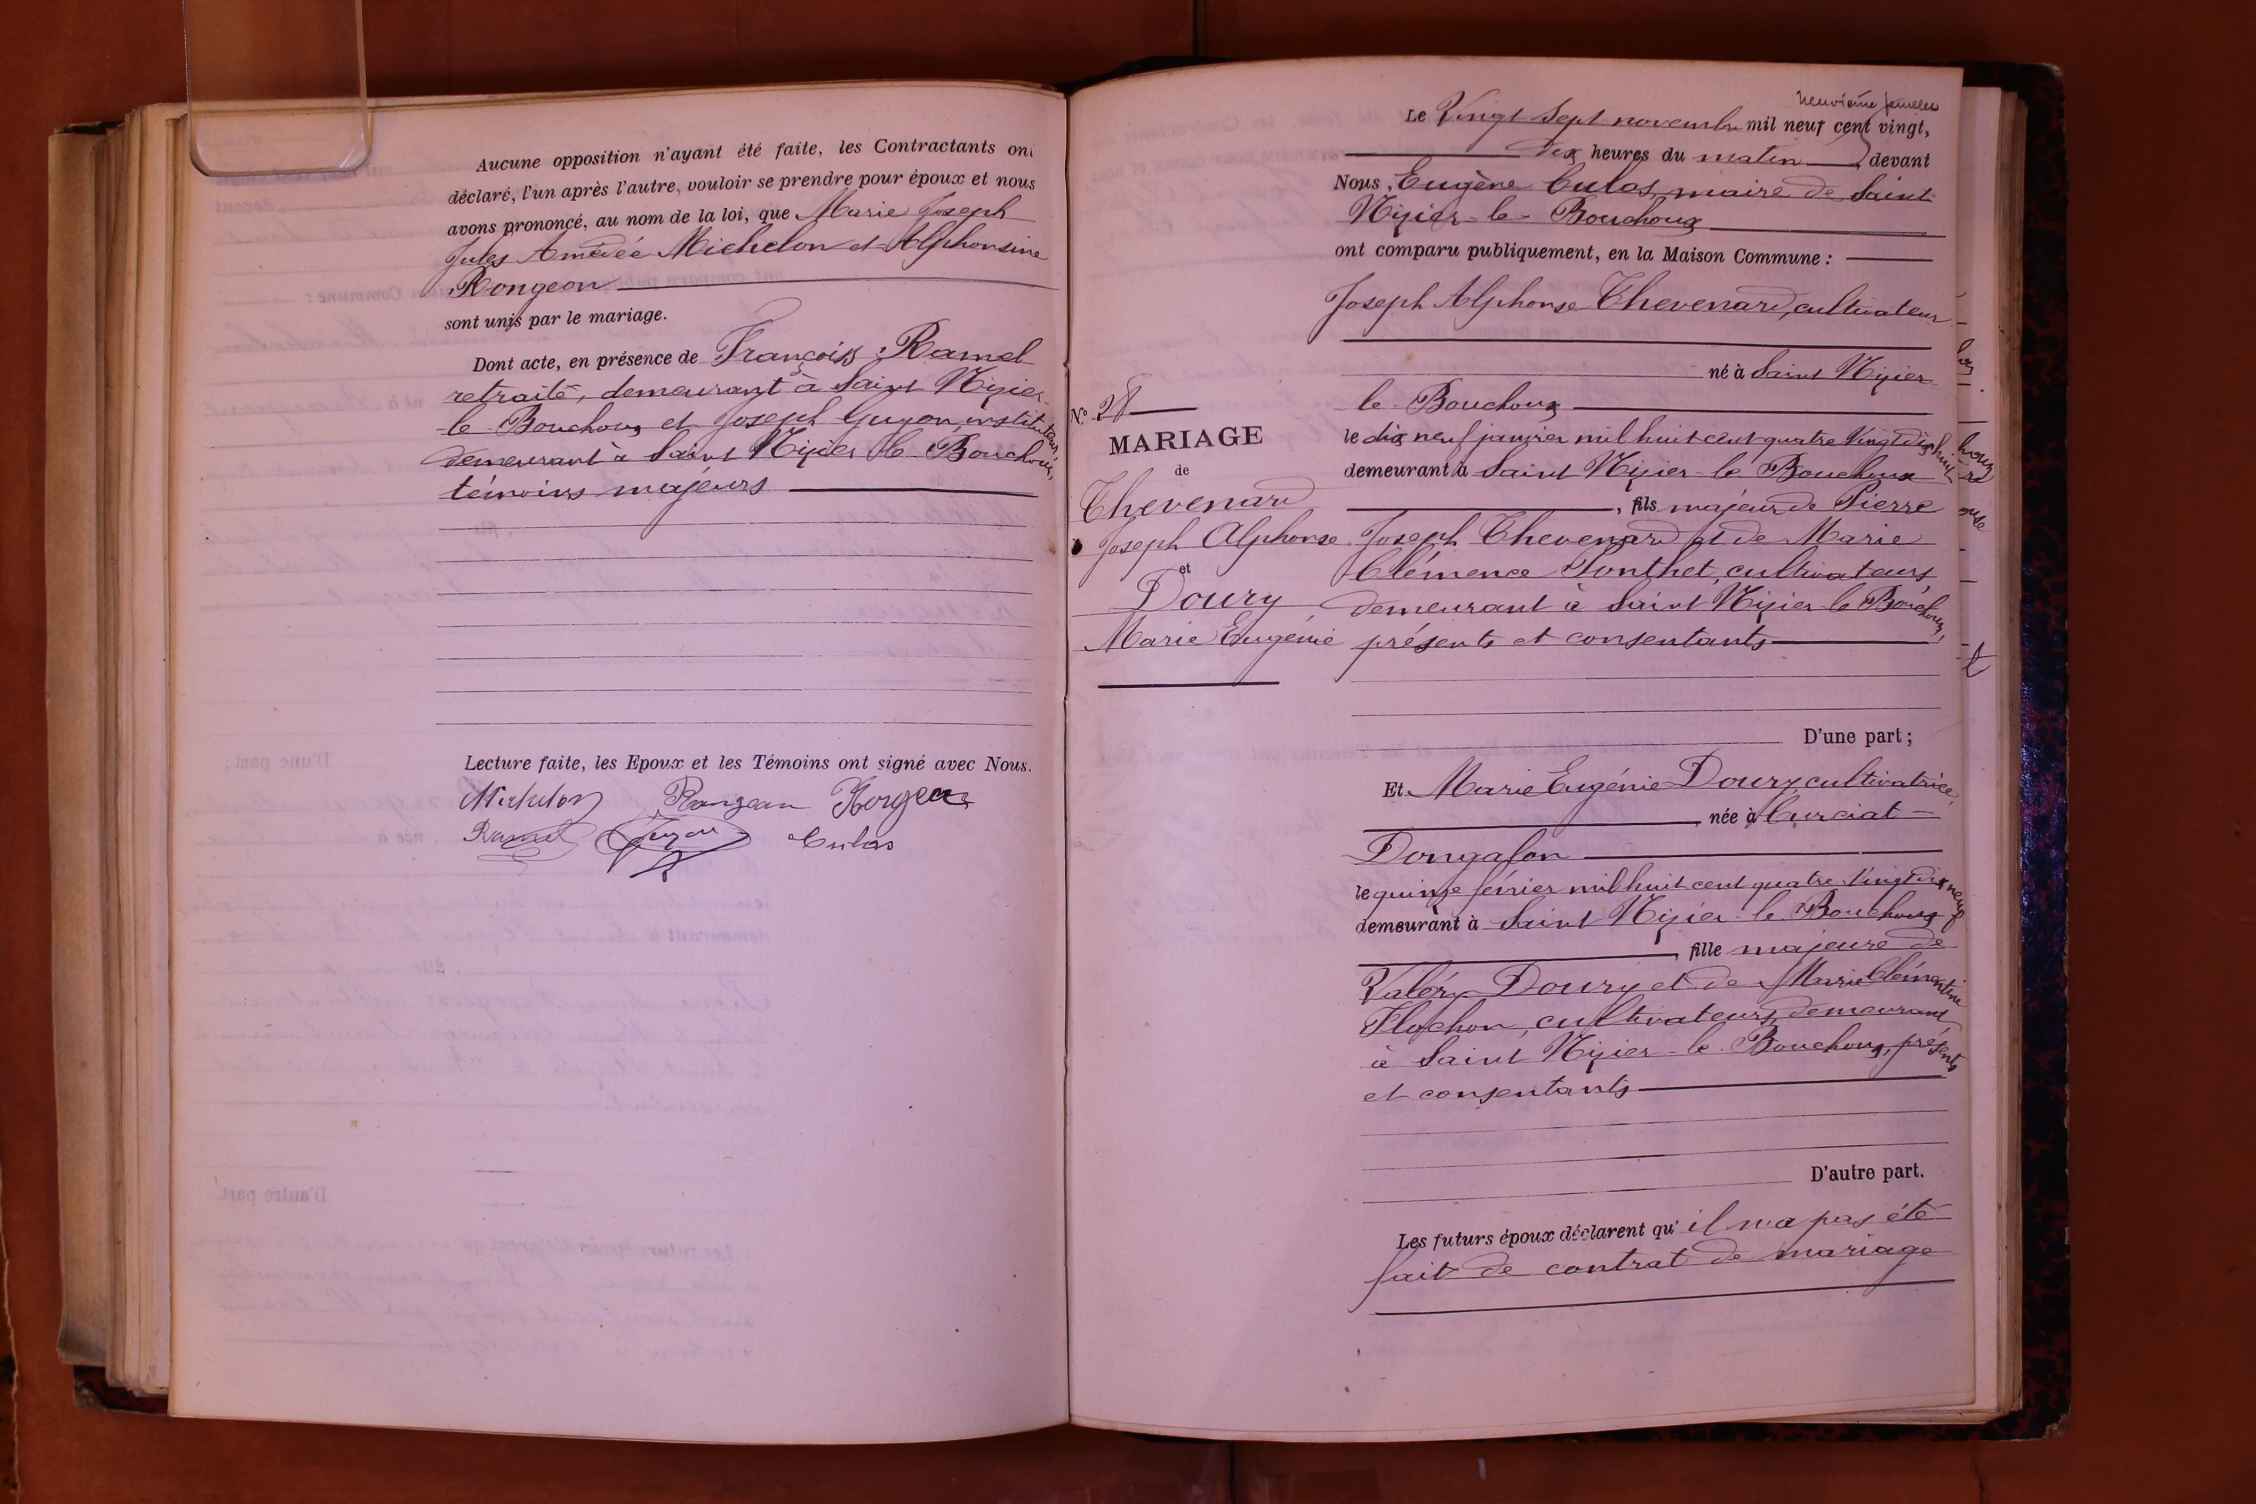 Aucune opposition n'ayant été faite, les Contractants ont
déclaré, l'un après l'autre, vouloir se prendre pour époux et nous
avons prononcé, au nom de la loi, que Marie Joseph
Jules Amédée Michelon et Alphonsine
Rongeon
sont unis par le mariage.
Dont acte, en présence de François Ramel
retraité, demeurant à Saint Nizier
le Bouchoux et Joseph Guyon, instituteur,
demeurant à Saint Nizier le Bouchoux,
témoins majeurs
Lecture faite, les Epoux et les Témoins ont signé avec Nous.
Michelon Rongeon
Ramel Guyon Culas
Le Vingt Sept novembre mil neuf cent vingt,
dix heures du matin, devant
Nous, Eugène Culas, maire de Saint
Nizier-le-Bouchoux
ont comparu publiquement, en la Maison Commune :
Joseph Alphonse Thevenard, cultivateur
né à Saint Nizier
le Bouchoux
le dix neuf janvier mil huit cent quatre Vingt dix huit
demeurant à Saint Nizier-le Bouchoux
, fils majeur de Pierre
Joseph Thevenard et de Marie
Clémence Ponthet, cultivateurs,
demeurant à Saint Nizier le Bouchoux,
présents et consentants
D'une part ;
N° 28
MARIAGE
de
Thevenard
Joseph Alphonse
et
Doury
Marie Eugénie
Et Marie Eugénie Doury, cultivatrice,
née à Curciat-
Dongalon
le quinze février mil huit cent quatre Vingt dix neuf
demeurant à Saint Nizier-le Bouchoux
, fille majeure de
Valéry Doury et de Marie Clémentine
Flochon, cultivateurs, demeurant
à Saint Nizier-le Bouchoux, présents
et consentants
D'autre part.
Les futurs époux déclarent qu'il n'a pas été
fait de contrat de mariage